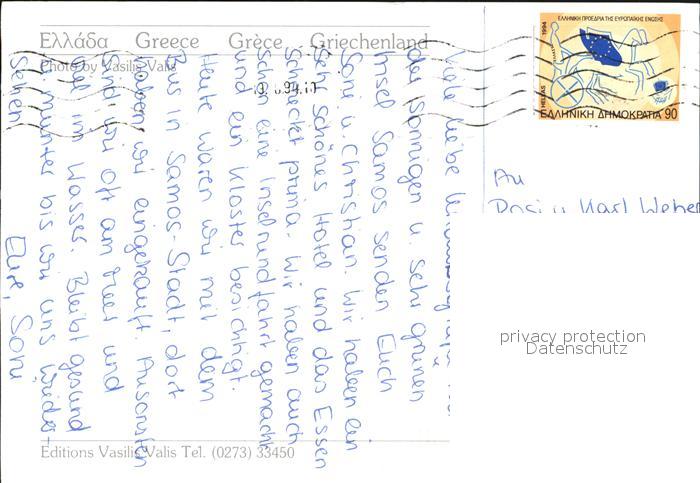 Ελλάδα Greece Grèce Griechenland
Photo by Vasilis Valis
Viele liebe
der sonnigen u. sehr grünen
Insel Samos senden Euch
Soni u. Christian. Wir haben ein
sehr schönes Hotel und das Essen
schmeckt prima. Wir haben auch
schon eine Inselrundfahrt gemacht
und ein Kloster besichtigt.
Heute waren wir mit dem
Bus in Samos-Stadt, dort
haben wir eingekauft. Ansonsten
sind wir oft am Meer und
viel im Wasser. Bleibt gesund
u. munter bis wir uns wieder-
sehen.
Eure Soni
Editions Vasilis Valis Tel. (0273) 33450
ΕΛΛΗΝΙΚΗ ΠΡΟΕΔΡΙΑ ΤΗΣ ΕΥΡΩΠΑΪΚΗΣ ΕΝΩΣΗΣ
1994
HELLAS
ΕΛΛΗΝΙΚΗ ΔΗΜΟΚΡΑΤΙΑ 90
An
Rosi u. Karl Weber
privacy protection
Datenschutz